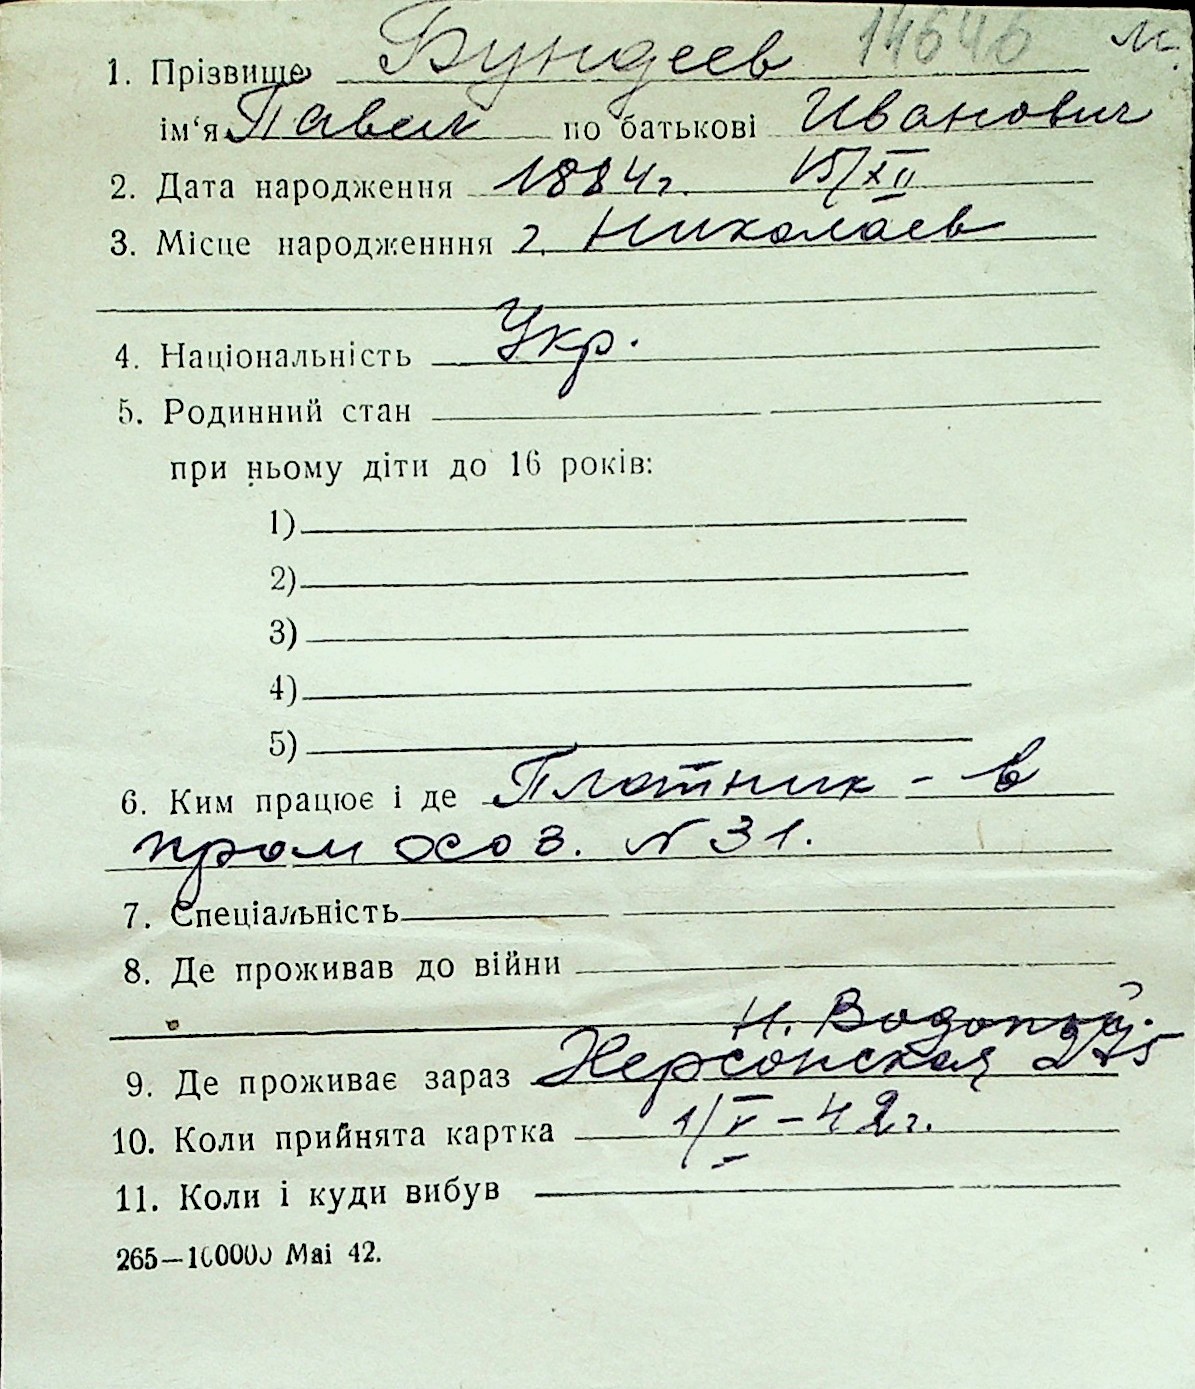 14646 м.
1. Прізвище Бундеев
ім‘я Павел по батькові Иванович
2. Дата народження 1884г. 15/XII
3. Місце народженння г. Николаев
4. Національність Укр.
5. Родинний стан
при ньому діти до 16 років:
1)
2)
3)
4)
5)
6. Ким працює і де Плотник - в
пром осоз. N 31.
7. Спеціальність
8. Де проживав до війни
Н. Водопой.
9. Де проживає зараз Херсонская 275
10. Коли прийнята картка 1/V - 42г.
11. Коли і куди вибув
265—100000 Mai 42.